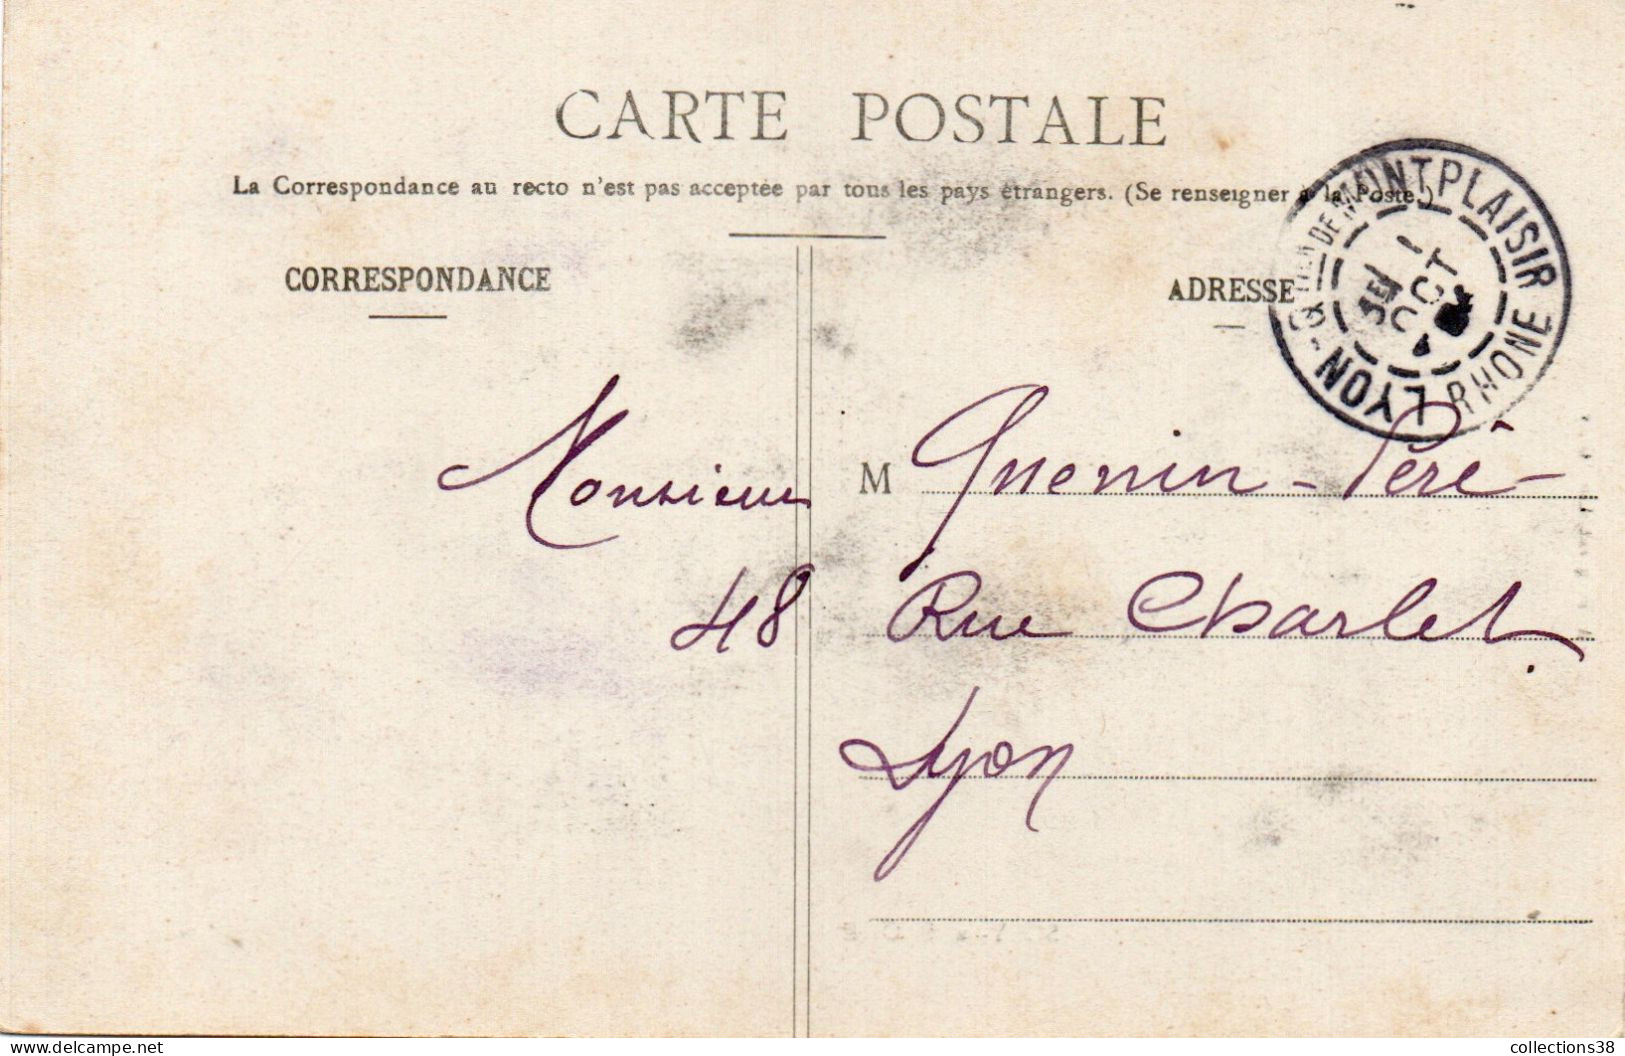 CARTE POSTALE
La Correspondance au recto n'est pas acceptée par tous les pays étrangers. (Se renseigner à la Poste.)
CORRESPONDANCE
ADRESSE
LYON - QTIER DE MONTPLAISIR
RHONE
1
OCT
Monsieur M Guenin - Père -
48 Rue Charlet.
Lyon
delcampe.net
collections38